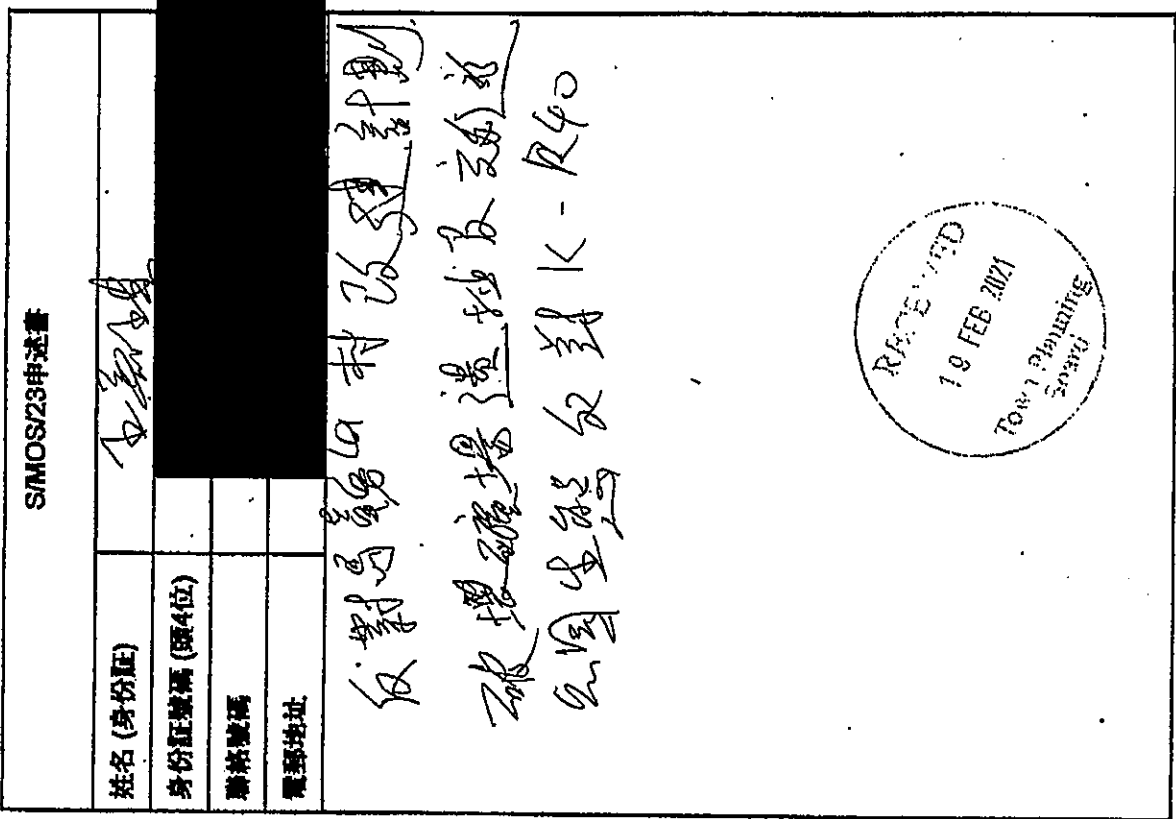 S/MOS/23申述書
姓名 (身份証)
身份証號碼 (頭4位)
聯絡號碼
電郵地址
反對馬鞍山村改建計劃
破壞礦場遺址及
生態 反對 K-R40
RECEIVED
19 FEB 2021
Town Planning
Board